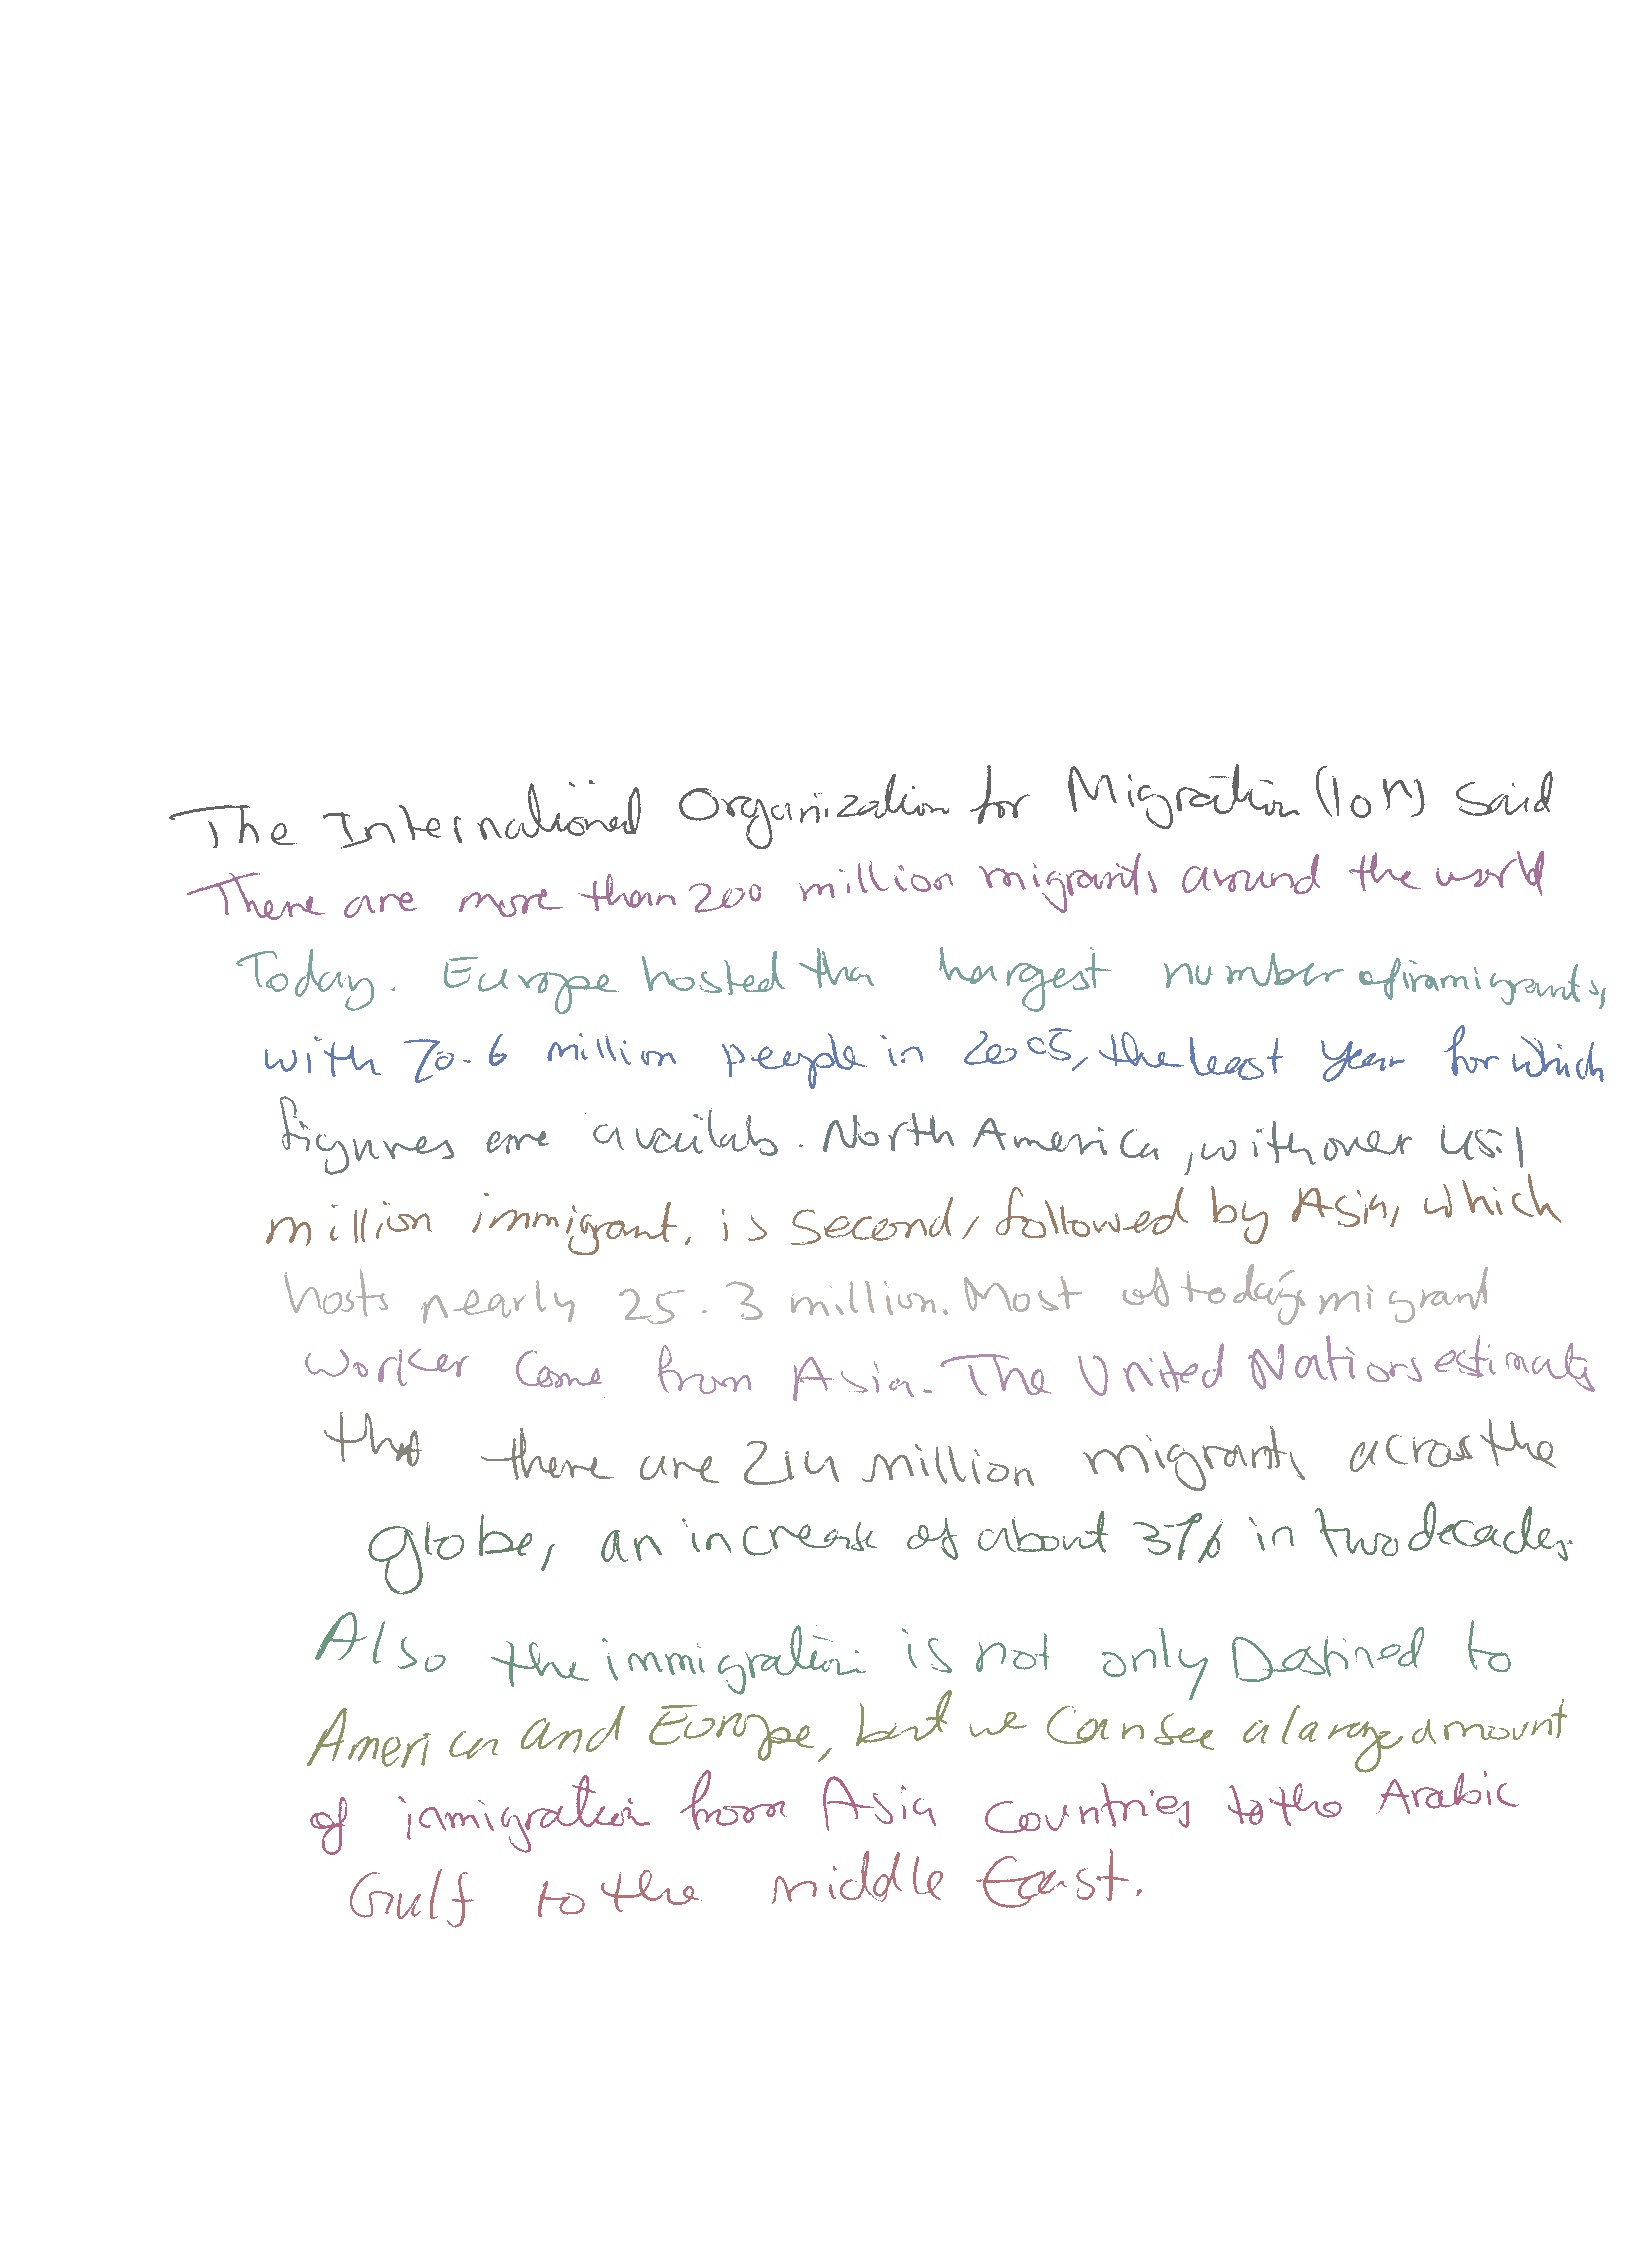 The International Organization for Migration (IOM) said
There are more than 200 million migrants around the world
Today. Europe hosted the hargest number of immigrants,
with 70.6 million people in 2005, the least year for which
figures are availab. North America, with over 45.1
million immigrant, is second, followed by Asia, which
hosts nearly 25.3 million. Most of today's migrant
worker come from Asia. The United Nations estimats
that there are 214 million migrants across the
globe, an increask of about 37% in two decades.
Also the immigration is not only Destined to
America and Europe, but we can see a large amount
of immigration from Asia countries to the Arabic
Gulf to the middle East.